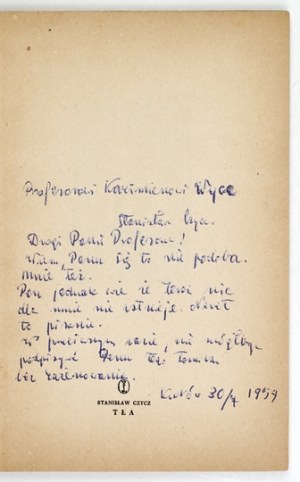 Profesorowi Kazimierzowi Wyce
Stanisław Czycz
Drogi Panie Profesorze!
Wiem, Panu się to nie podoba.
Mnie też.
Pan jednak wie że teraz nic
dla mnie nie istnieje. Nawet
to pisanie.
W przeciwnym razie, nie mógłbym
podpisywać Panu tego tomiku
bez zażenowania.
Kraków 30/ 1959
STANISŁAW CZYCZ
TŁA